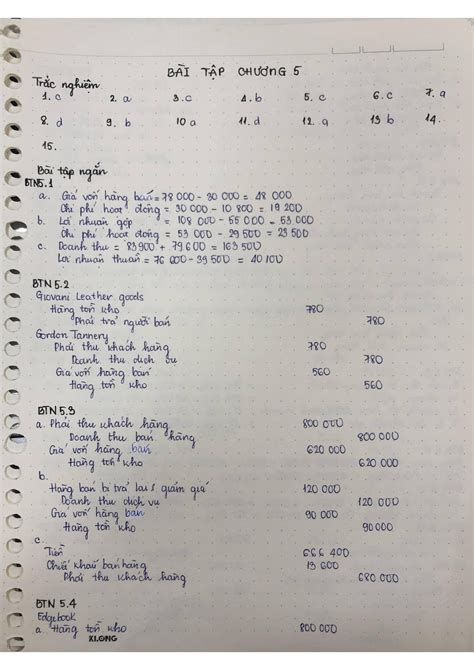 BÀI TẬP CHƯƠNG 5
Trắc nghiệm
1. c 2. a 3. c 4. b 5. c 6. c 7. a
8. d 9. b 10 a 11. d 12. a 13 b 14.
15.
Bài tập ngắn
BTN5.1
a. Giá vốn hàng bán = 78 000 - 30 000 = 48 000
Chi phí hoạt động = 30 000 - 10 800 = 19 200
b. Lợi nhuận gộp = 108 000 - 55 000 = 53 000
Chi phí hoạt động = 53 000 - 29 500 = 23 500
c. Doanh thu = 83 900 + 79 600 = 163 500
Lợi nhuận thuần = 76 600 - 39 500 = 40 100
BTN 5.2
Giovani Leather goods
Hàng tồn kho 780
Phải trả người bán 780
Gordon Tannery
Phải thu khách hàng 780
Doanh thu dịch vụ 780
Giá vốn hàng bán 560
Hàng tồn kho 560
BTN 5.3
a. Phải thu khách hàng 800 000
Doanh thu bán hàng 800 000
Giá vốn hàng bán 620 000
Hàng tồn kho 620 000
b.
Hàng bán bị trả lại / giảm giá 120 000
Doanh thu dịch vụ 120 000
Giá vốn hàng bán 90 000
Hàng tồn kho 90 000
c.
Tiền 666 400
Chiết khấu bán hàng 13 600
Phải thu khách hàng 680 000
BTN 5.4
Edgebook
a. Hàng tồn kho 800 000
KLONG